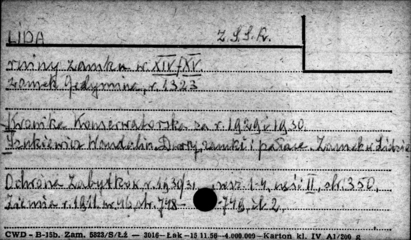 LIDA Z.S.S.R.
ruiny zamku w. XIV/XV
zamek Gedymina, r. 1323
Kronika Konserwatorska za r. 1929 i 1930.
Szukiewicz Wandalin, Dwory, zamki i pałace. Zamek w Lidzie
Ochrona Zabytków, r. 1930/31, z. 1-4, część II, str. 350,
Ziemia r. 1911 nr 46, str. 748 - 749, il. 2.
CWD - B-15b. Zam. 5823/S/Łż - 3016 - Łak - 13 11.58 - 4.000.000 - Karton kl. IV A1/200 g